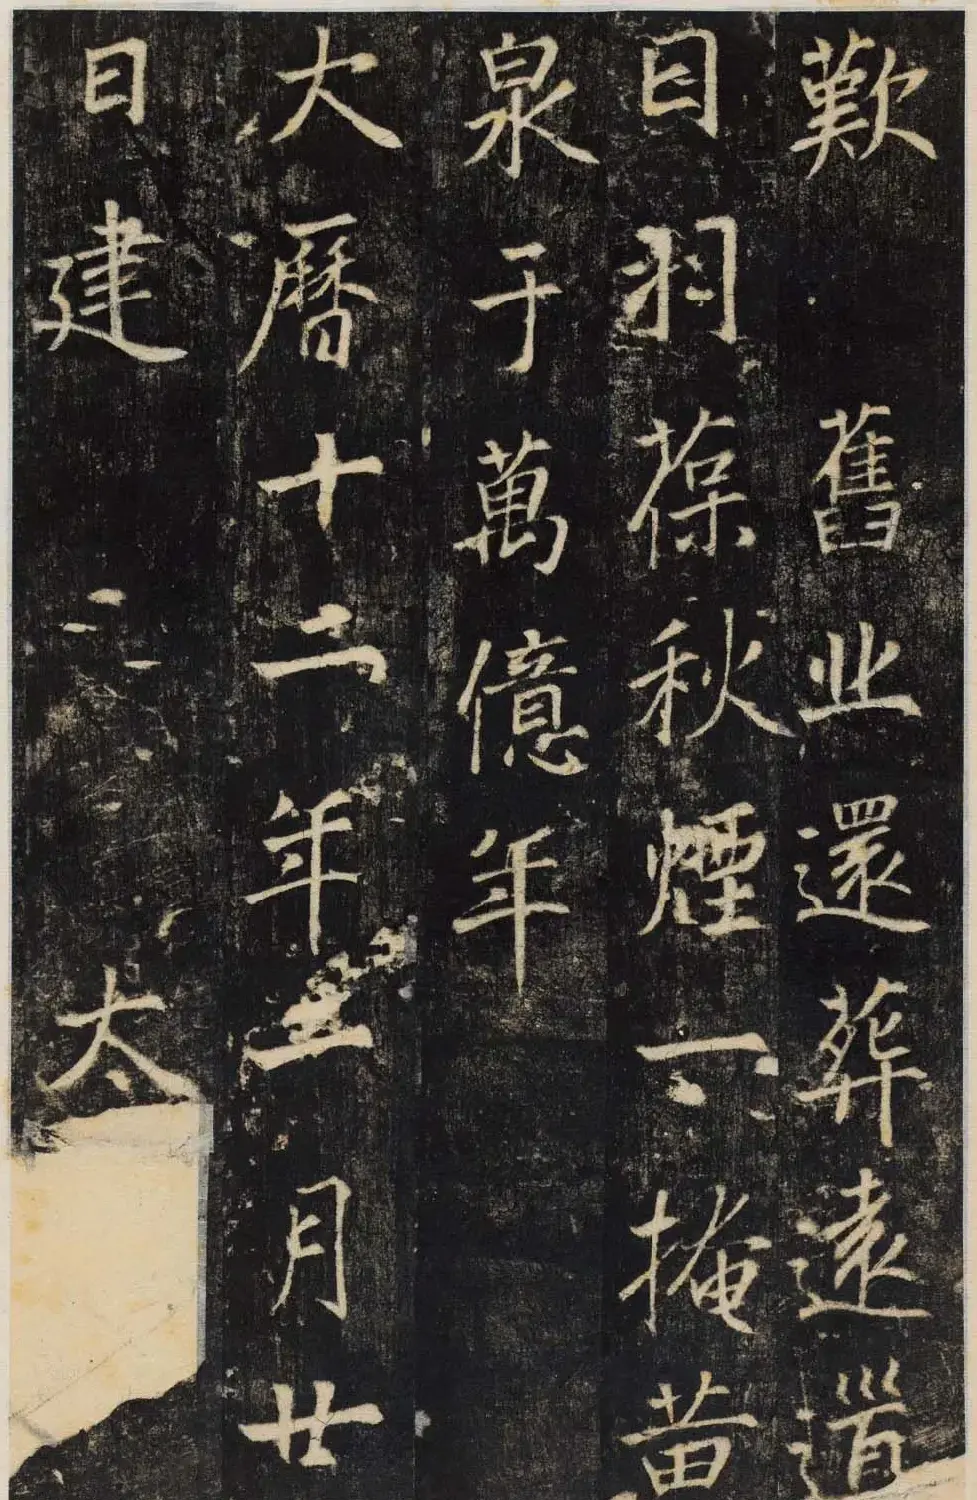 歎舊业還葬遠道
目羽葆秋煙一掩黄
泉于萬億年
大曆十二年五月廿
日建太